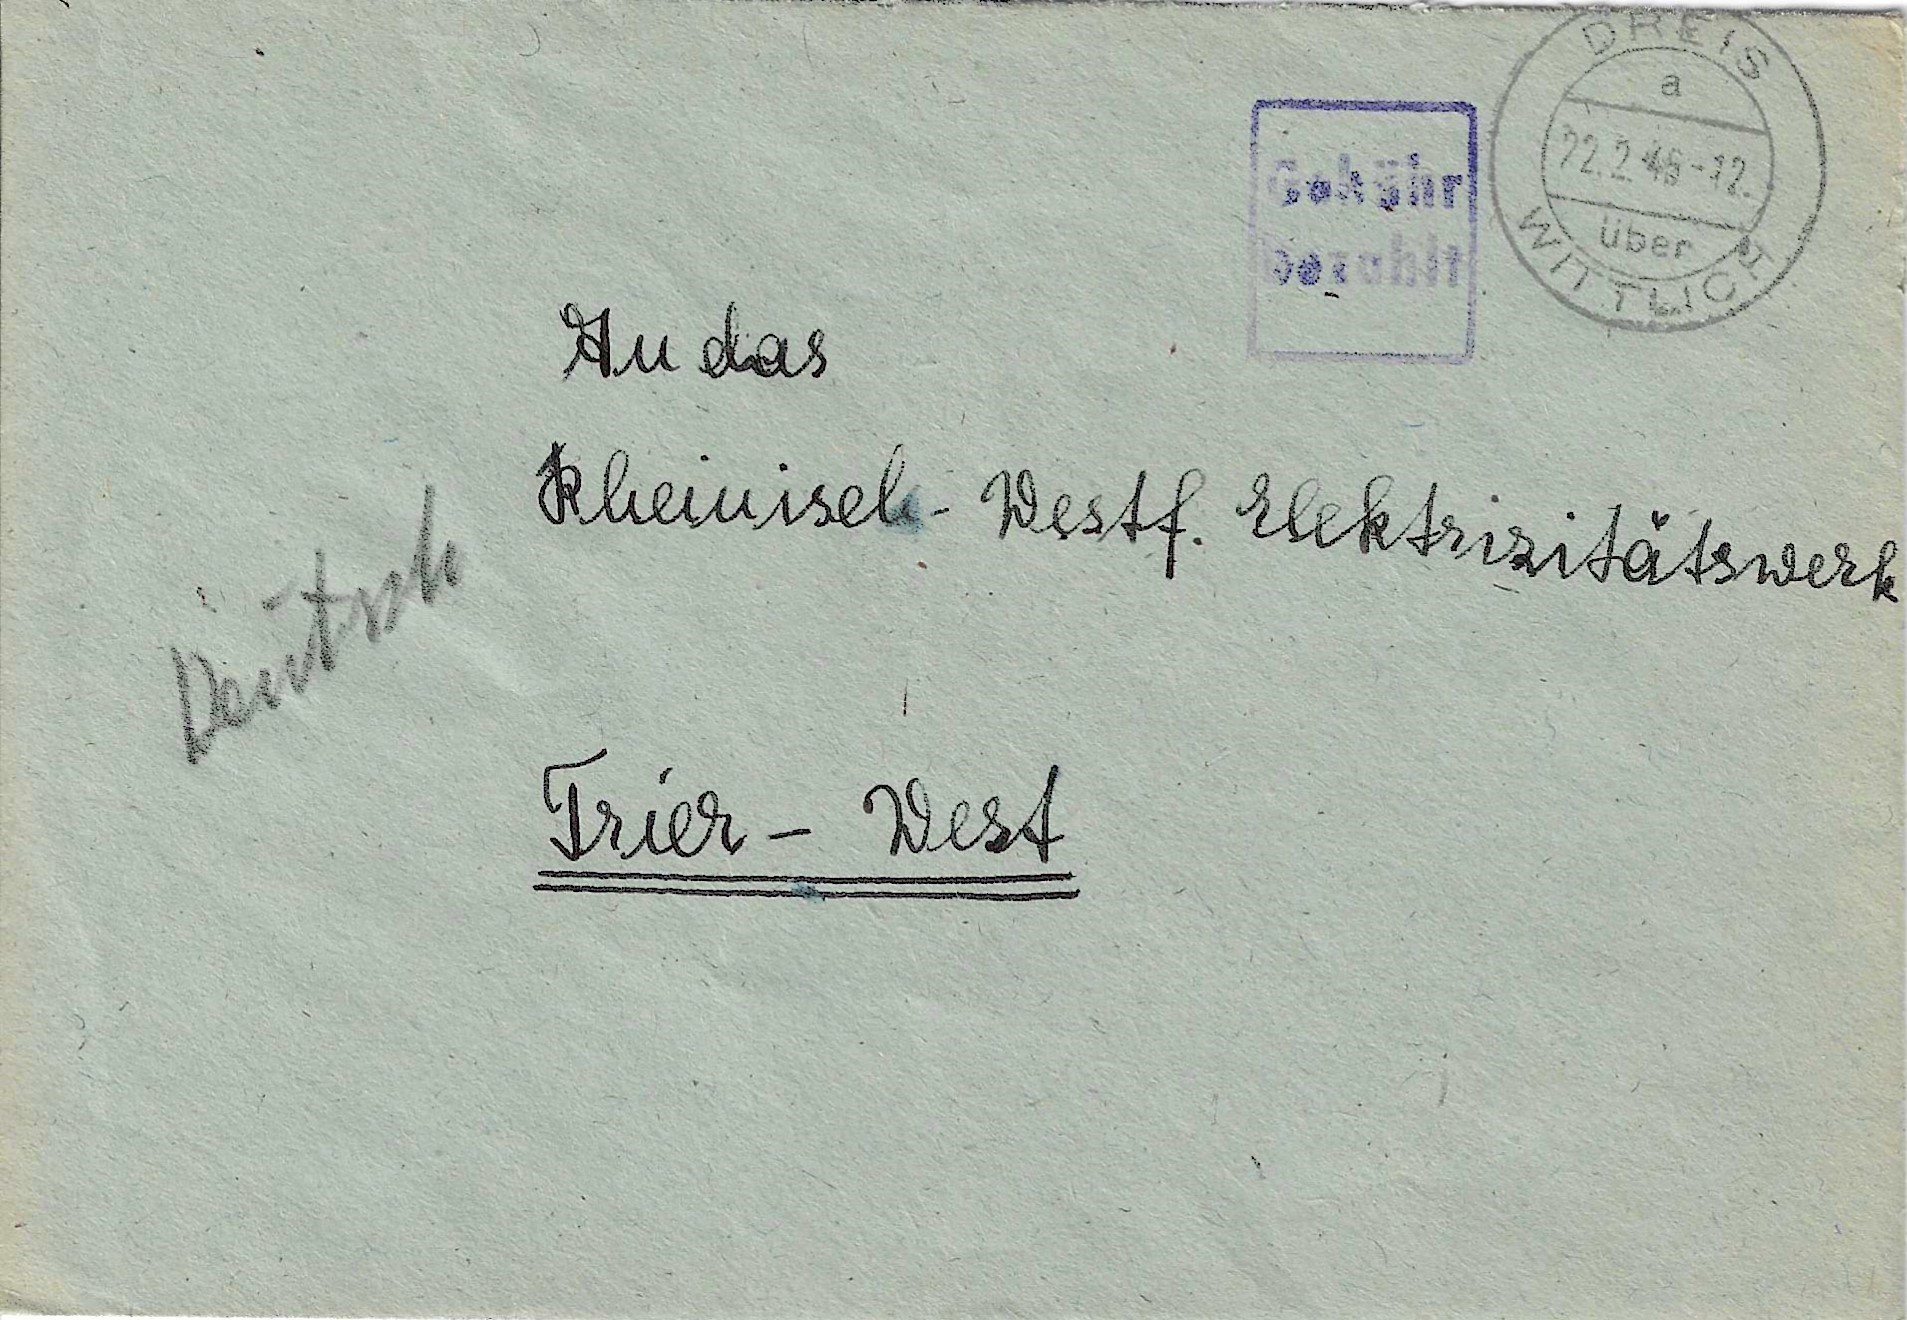 DREIS
a
22.2.46-12.
über
WITTLICH
Gebühr
bezahlt
An das
Rheinisch- Westf. Elektrizitätswerk
Deutsch
Trier - West